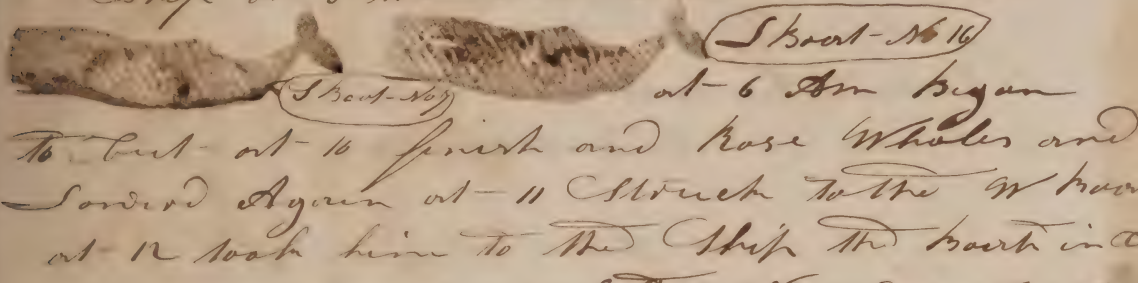 S Boat - No 16
S Boat - No
at - 6 Am Began
to Cut at - 10 finish and Rose Whales and
Lowerd Again at - 11 Struck to the W Boa
at - 12 took him to the Ship the boat in